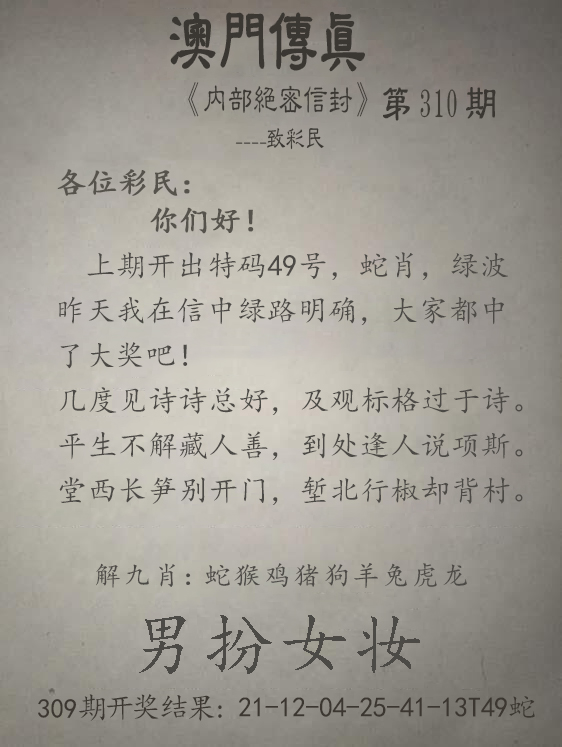 澳門傳眞
《内部絕密信封》第310期
----致彩民
各位彩民：
你们好！
上期开出特码49号，蛇肖，绿波
昨天我在信中绿路明确，大家都中
了大奖吧！
几度见诗诗总好，及观标格过于诗。
平生不解藏人善，到处逢人说项斯。
堂西长笋别开门，堑北行椒却背村。
解九肖：蛇猴鸡猪狗羊兔虎龙
男扮女妆
309期开奖结果：21-12-04-25-41-13T49蛇